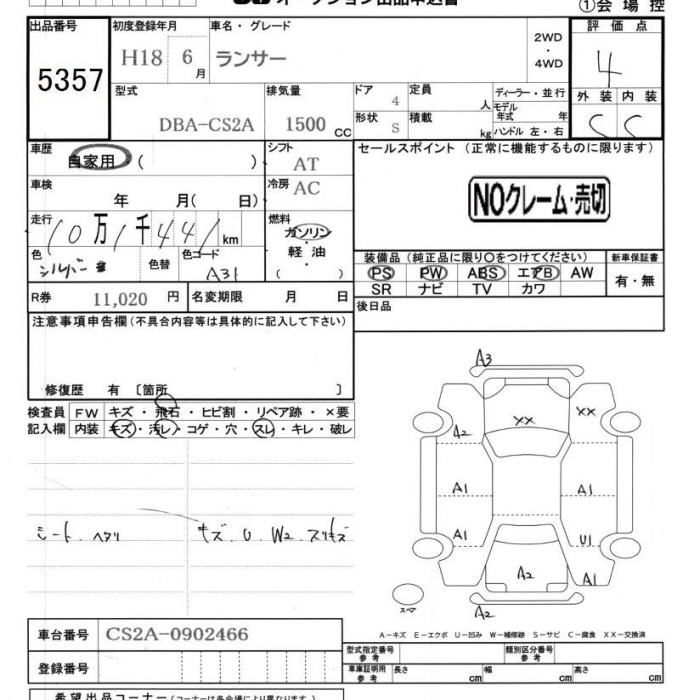 ①会場控
出品番号 初度登録年月 車名・グレード 2WD・4WD 評価点
5357 H18 6月 ランサー 4
型式 排気量 ドア 4 定員 人 ディーラー・並行 外装 内装
DBA-CS2A 1500 CC 形状 S 積載 kg モデル年式 年 ハンドル 左・右 C C
車歴 自家用 ( ) シフト AT セールスポイント (正常に機能するものに限ります)
車検 年 月( 日) 冷房 AC NOクレーム・売切
走行 10万1千441km 燃料 ガソリン・軽油 ( )
色 シルバー 色替 色コード A31
装備品 (純正品に限り○をつけてください) 新車保証書
PS PW ABS エアB AW 有・無
SR ナビ TV カワ
R券 11,020円 名変期限 月 日 後日品
注意事項申告欄(不具合内容等は具体的に記入して下さい)
修復歴 有 〔箇所 〕
検査員 FW キズ・飛石・ヒビ割・リペア跡・×要
記入欄 内装 キズ・汚レ・コゲ・穴・スレ・キレ・破レ
シート ヘタリ キズ U W2 スリキズ
A3
XX XX
A2
A1 A1
A1 U1
A2 A1
スペア A2
A-キズ E-エクボ U-凹み W-補修跡 S-サビ C-腐食 XX-交換済
車台番号 CS2A-0902466
型式指定番号 参考 類別区分番号 参考
登録番号 車庫証明用 参考 長さ cm 幅 cm 高さ cm
希望出品コーナー(コーナーは各会場により異なります)